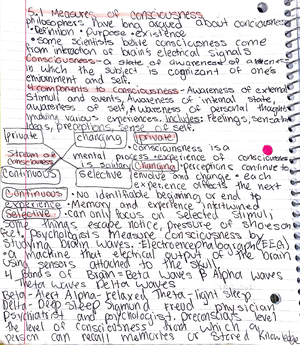 5.1 Measures of Consciousness
philosophers have long argued about conciousness
•Definition • Purpose • existence
• some scientists belive consciousness come
from interaction of brain's electrical signals
Consciousness - a state of awareness of
in which the subject is cognizant of one's
enviroment and self.
4 components to consciousness - Awareness of external
Stimuli and events, Awareness of internal state,
awareness of self, Awareness of personal thought
including various experiences. Includes: feelings, sensations
ideas, preceptions, sense of self.
private changing private
• Consciousness is a
Stream of Consciousness mental process • experience of consciousness
is solitary Changing • perceptions continue to
continuous selective envolve and change • each
experience affects the next
Continuous • No identifiable beginning or end to
experience • Memory and experience intertwined
Selective • can only focus on selected stimuli
some things escape notice, pressure of shoes on
feet. • Psychologists Measure Consciousness by
studying brain waves. • Electroencephalograph (EEG)
A Machine that electrical output of the brain
using sensors attached to the skull.
4 Bands of Brain = Beta waves Alpha waves
Theta waves Delta waves
Beta - Alert Alpha - relaxed, Theta - light sleep
Delta - Deep sleep Sigmund Freud - physician
Psychiatrist and psychologist. Preconscious level
the level of consciousness from which a
person can recall memories or stored knowledge